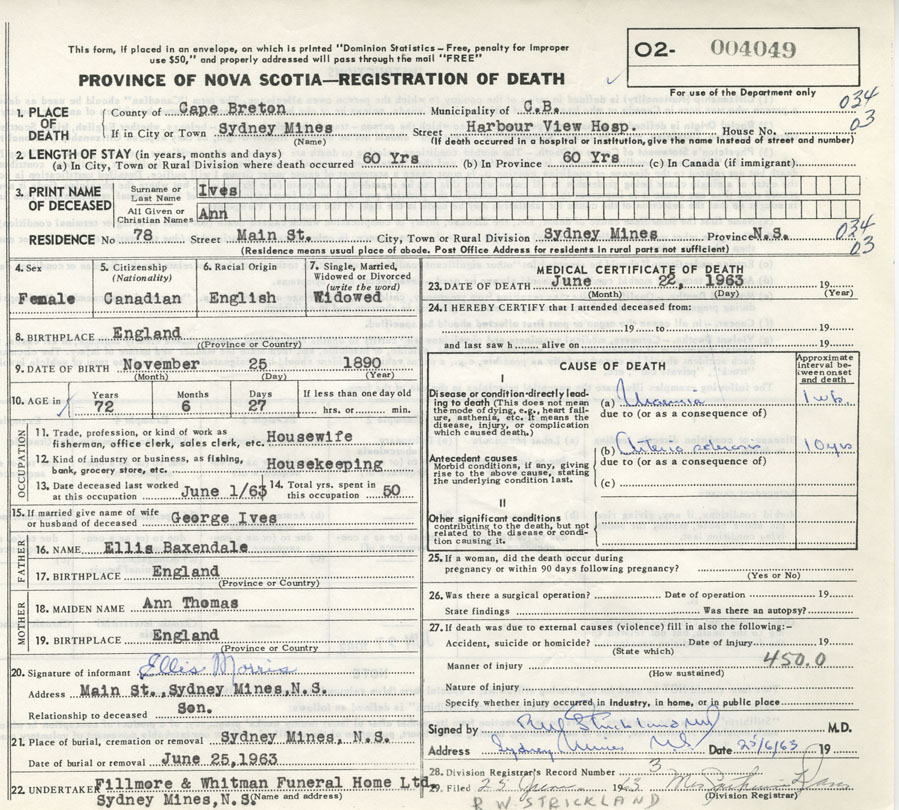 This form, if placed in an envelope, on which is printed "Dominion Statistics – Free, penalty for improper
use $50," and properly addressed will pass through the mail "FREE"
PROVINCE OF NOVA SCOTIA—REGISTRATION OF DEATH
O2- 004049
For use of the Department only
034
03
1. PLACE OF DEATH County of Cape Breton Municipality of C.B.
If in City or Town Sydney Mines Street Harbour View Hosp. House No.
(Name) (If death occurred in a hospital or institution, give the name instead of street and number)
2. LENGTH OF STAY (in years, months and days)
(a) In City, Town or Rural Division where death occurred 60 Yrs (b) In Province 60 Yrs (c) In Canada (if immigrant)
3. PRINT NAME OF DECEASED
Surname or Last Name Ives
All Given or Christian Names Ann
034
03
RESIDENCE No 78 Street Main St. City, Town or Rural Division Sydney Mines Province N.S.
(Residence means usual place of abode. Post Office Address for residents in rural parts not sufficient)
4. Sex
Female
5. Citizenship
(Nationality)
Canadian
6. Racial Origin
English
7. Single, Married,
Widowed or Divorced
(write the word)
Widowed
8. BIRTHPLACE England
(Province or Country)
9. DATE OF BIRTH November 25 1890
(Month) (Day) (Year)
10. AGE in Years 72 Months 6 Days 27 If less than one day old
hrs. or min.
OCCUPATION
11. Trade, profession, or kind of work as
fisherman, office clerk, sales clerk, etc. Housewife
12. Kind of industry or business, as fishing,
bank, grocery store, etc. Housekeeping
13. Date deceased last worked
at this occupation June 1/63
14. Total yrs. spent in
this occupation 50
15. If married give name of wife
or husband of deceased George Ives
FATHER
16. NAME Ellis Baxendale
17. BIRTHPLACE England
(Province or Country)
MOTHER
18. MAIDEN NAME Ann Thomas
19. BIRTHPLACE England
(Province or Country
20. Signature of informant Ellis Morris
Address Main St., Sydney Mines, N.S.
Relationship to deceased Son.
21. Place of burial, cremation or removal Sydney Mines, N.S.
Date of burial or removal June 25, 1963
22. UNDERTAKER Fillmore & Whitman Funeral Home Ltd
Sydney Mines, N.S. (Name and address)
MEDICAL CERTIFICATE OF DEATH
23. DATE OF DEATH June 22, 1963 19
(Month) (Day) (Year)
24. I HEREBY CERTIFY that I attended deceased from:
19 to 19
and last saw h alive on 19
CAUSE OF DEATH
Approximate
interval be-
tween onset
and death
I
Disease or condition directly lead-
ing to death (This does not mean
the mode of dying, e.g., heart fail-
ure, asthenia, etc. It means the
disease, injury, or complication
which caused death.)
(a) Uraemia 1 wk.
due to (or as a consequence of
Antecedent causes
Morbid conditions, if any, giving
rise to the above cause, stating
the underlying condition last.
(b) Arterio sclerosis 10 yrs
due to (or as a consequence of)
(c)
II
Other significant conditions
contributing to the death, but not
related to the disease or condi-
tion causing it.
25. If a woman, did the death occur during
pregnancy or within 90 days following pregnancy?
(Yes or No)
26. Was there a surgical operation? Date of operation 19
State findings Was there an autopsy?
27. If death was due to external causes (violence) fill in also the following:–
Accident, suicide or homicide? Date of injury 19
(State which)
Manner of injury 450.0
(How sustained)
Nature of injury
Specify whether injury occurred in industry, in home, or in public place
Signed by RW Strickland M.D.
Address Sydney Mines NS Date 25/6/63 19
28. Division Registrar's Record Number 3
29. Filed 25 June 1963
(Division Registrar)
R W STRICKLAND